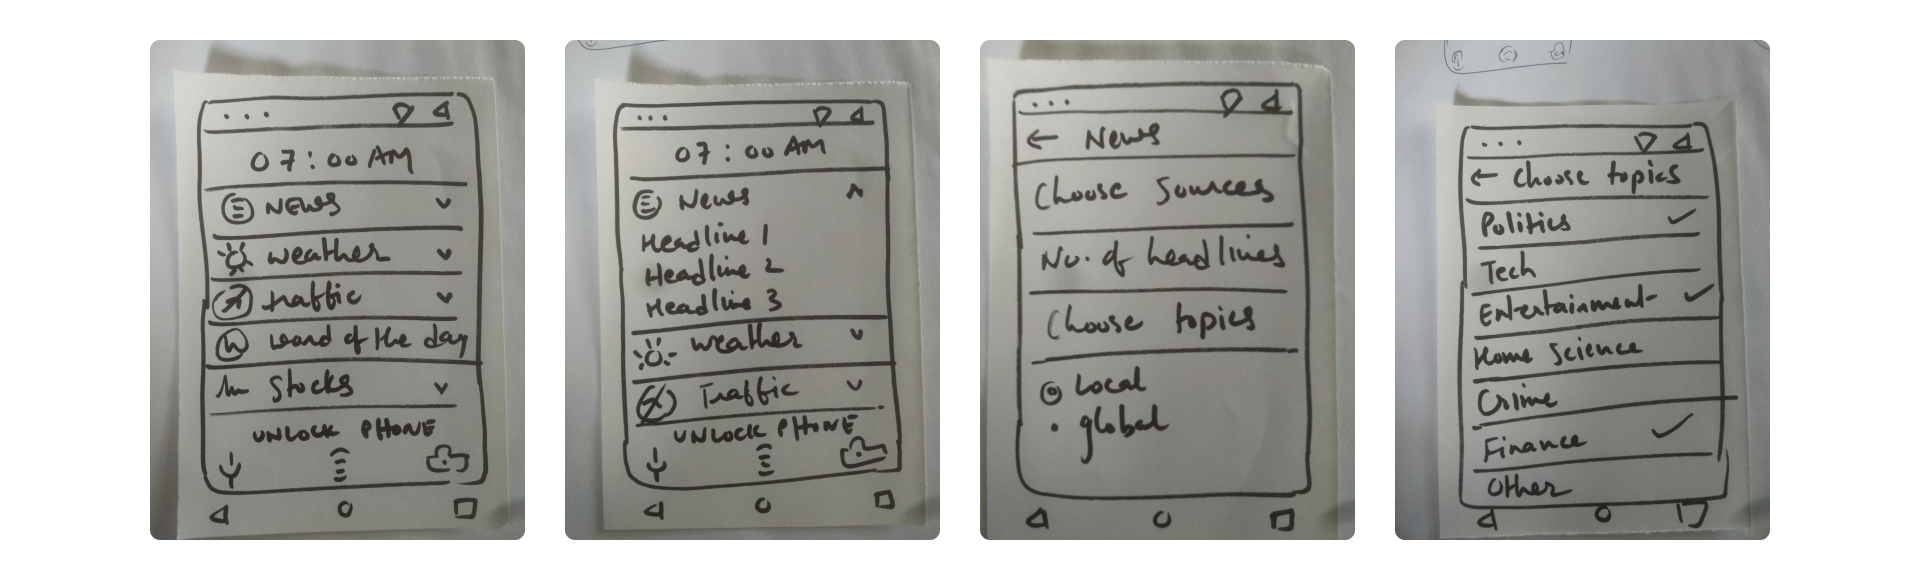 07:00 AM
NEWS
weather
traffic
word of the day
Stocks
UNLOCK PHONE
07:00 AM
News
Headline 1
Headline 2
Headline 3
weather
Traffic
UNLOCK PHONE
← News
Choose Sources
No. of headlines
Choose topics
Local
global
← Choose topics
Politics
Tech
Entertainment
Home Science
Crime
Finance
Other